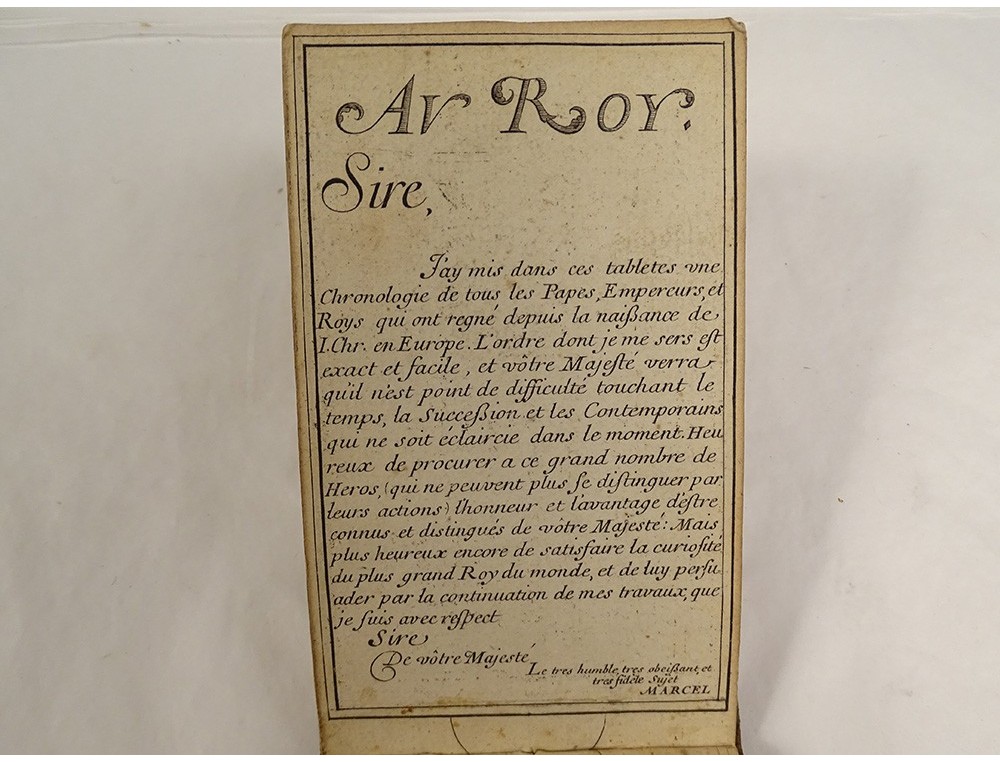 AV ROY.
Sire,
J'ay mis dans ces tabletes vne
Chronologie de tous les Papes, Empereurs, et
Roys qui ont regné depuis la naißance de
I.Chr. en Europe. L'ordre dont je me sers eſt
exact et facile, et vôtre Majeſté verra
qu'il n'est point de difficulté touchant le
temps, la Succeßion et les Contemporains
qui ne soit éclaircie dans le moment. Heu
reux de procurer a ce grand nombre de
Heros, (qui ne peuvent plus ſe diſtinguer par
leurs actions) l'honneur et l'avantage d'éstre
connus et distingués de vôtre Majesté: Mais
plus heureux encore de satisfaire la curioſité
du plus grand Roy du monde, et de luy perſu
ader par la continuation de mes travaux, que
je ſuis avec reſpect
Sire
De vôtre Majesté
Le tres humble, tres obeißant, et
tres fidele Sujet
MARCEL